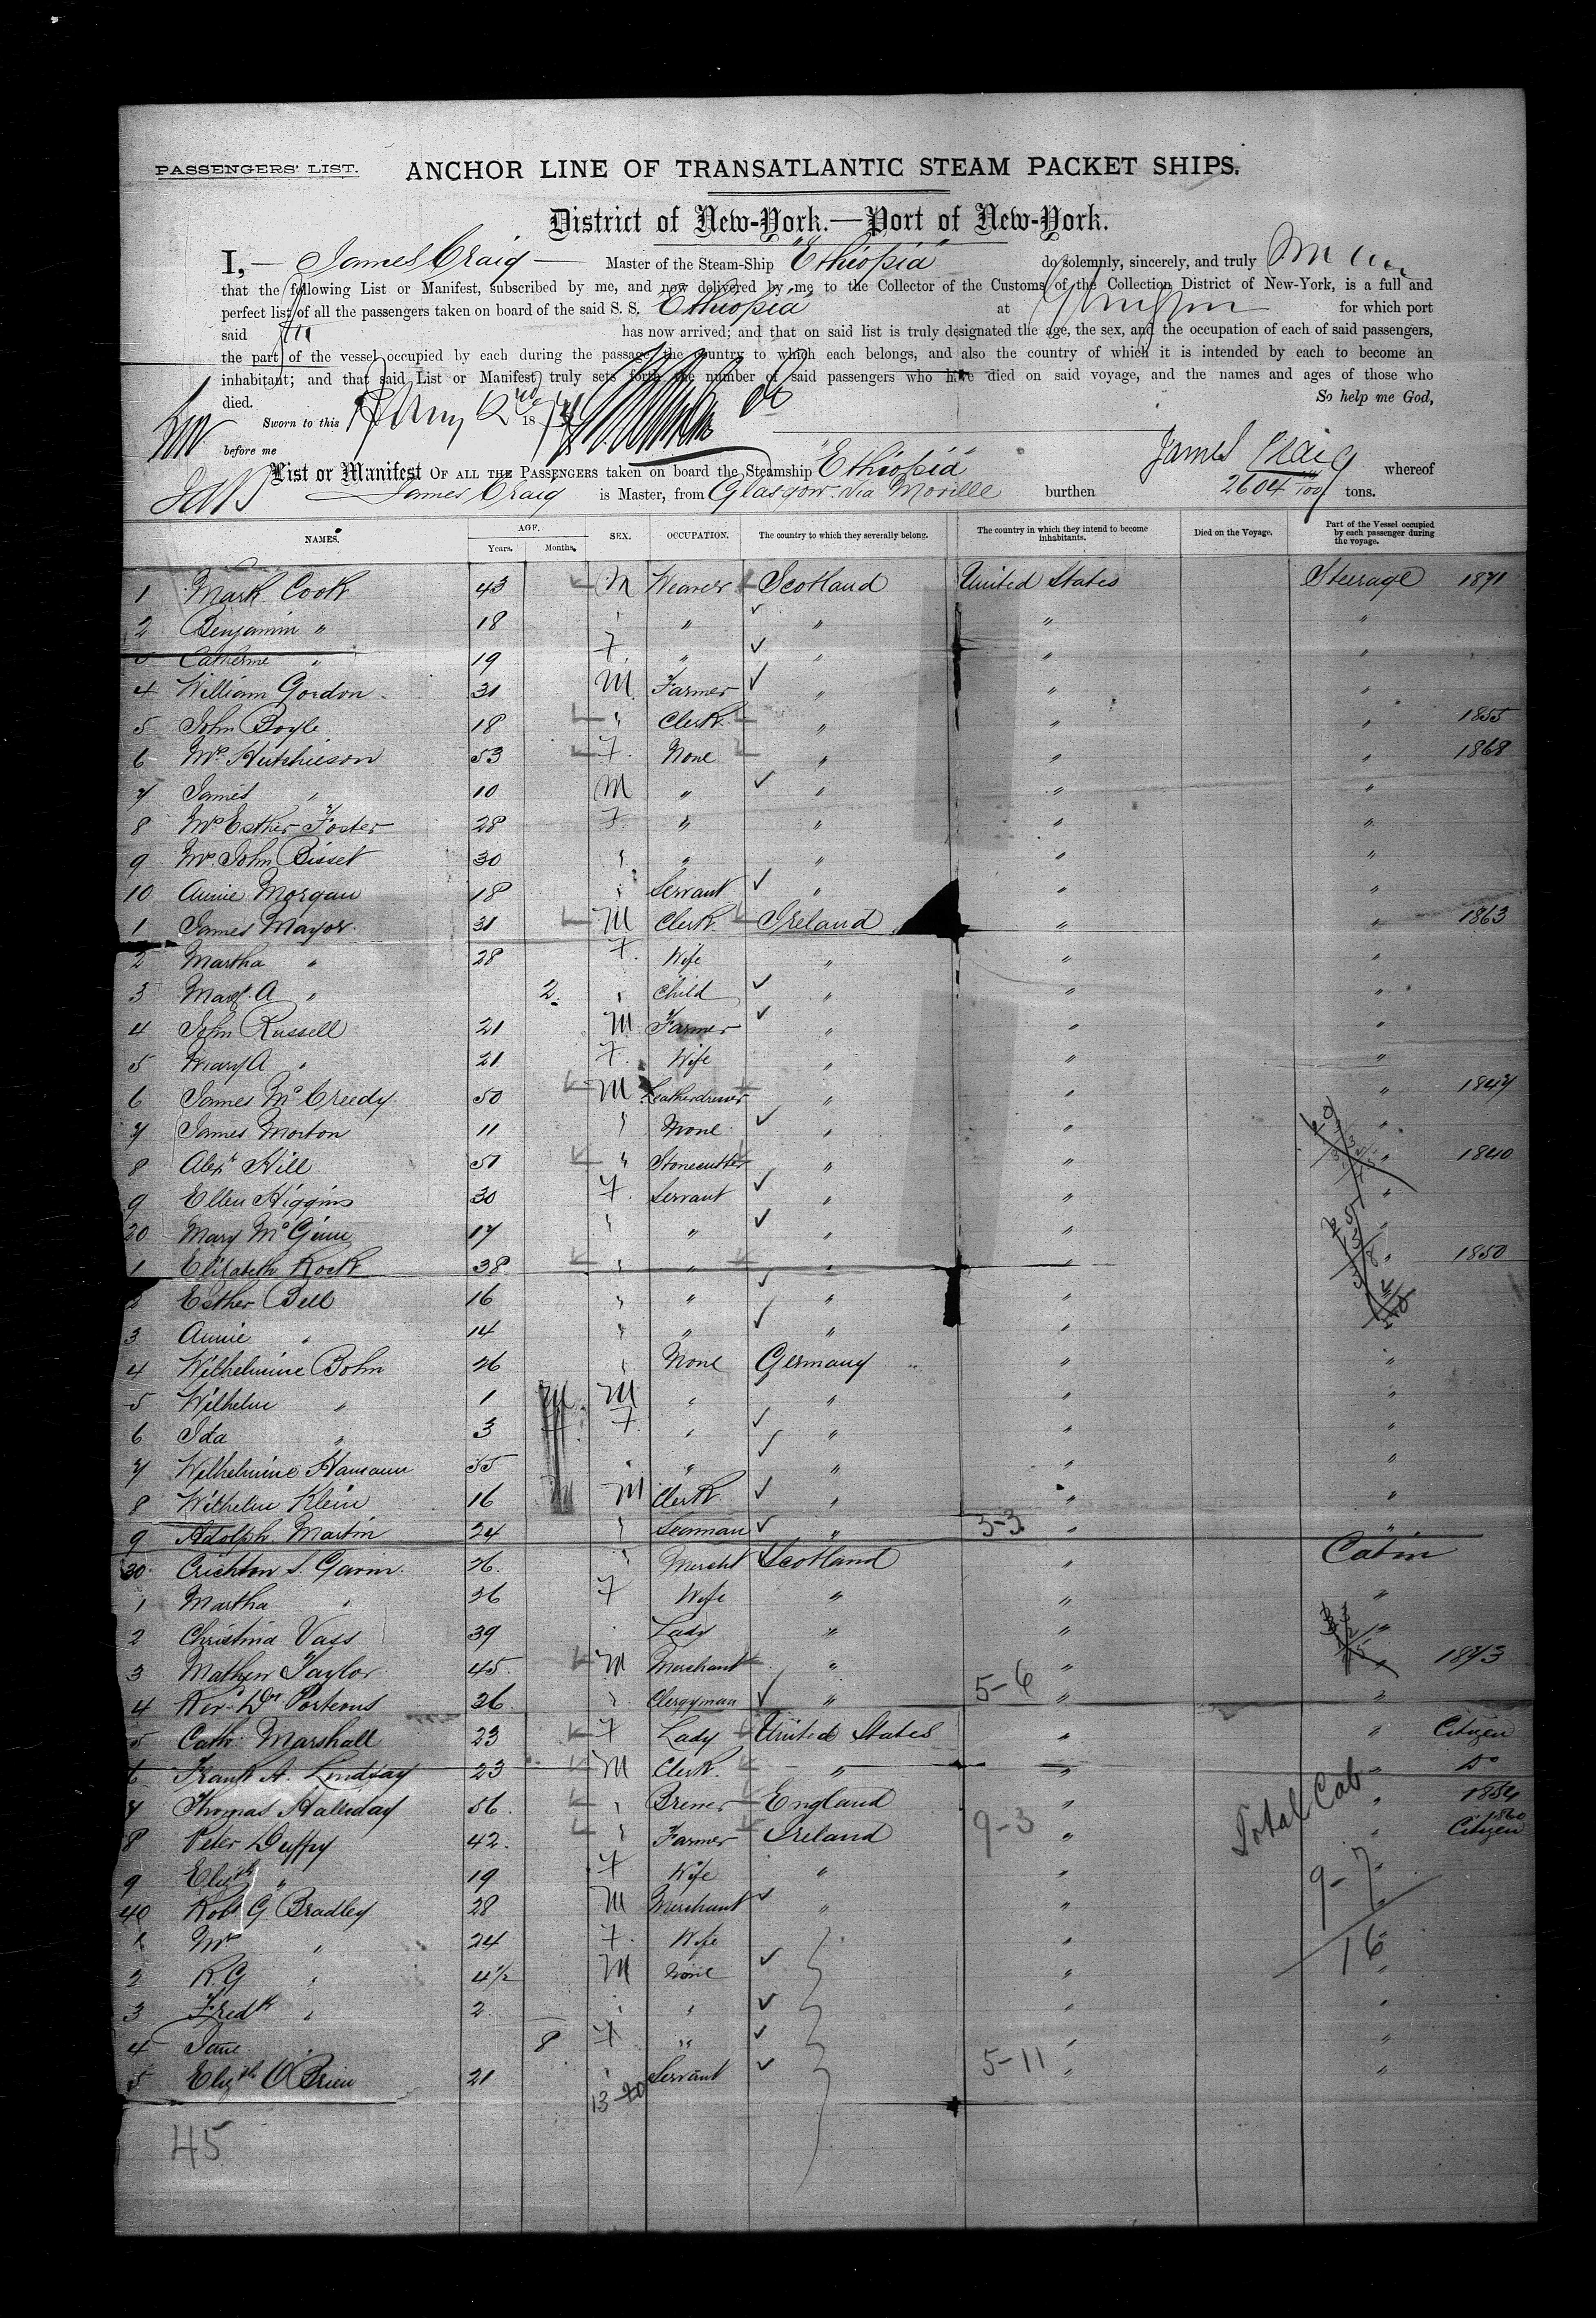 PASSENGERS' LIST.
ANCHOR LINE OF TRANSATLANTIC STEAM PACKET SHIPS.
District of New-York.—Port of New-York.
I, — James Craig — Master of the Steam-Ship "Ethiopia" do solemnly, sincerely, and truly
that the following List or Manifest, subscribed by me, and now delivered by me to the Collector of the Customs of the Collection District of New-York, is a full and
perfect list of all the passengers taken on board of the said S. S. Ethiopia at for which port
said has now arrived; and that on said list is truly designated the age, the sex, and the occupation of each of said passengers,
the part of the vessel occupied by each during the passage, the country to which each belongs, and also the country of which it is intended by each to become an
inhabitant; and that said List or Manifest truly sets forth the number of said passengers who have died on said voyage, and the names and ages of those who
died. So help me God,
Sworn to this 18
before me James Craig
List or Manifest OF ALL THE PASSENGERS taken on board the Steamship "Ethiopia" whereof
James Craig is Master, from Glasgow via Moville burthen 2604 /100 tons.
NAMES. AGE. Years. Months. SEX. OCCUPATION. The country to which they severally belong. The country in which they intend to become inhabitants. Died on the Voyage. Part of the Vessel occupied by each passenger during the voyage.
1 Mark Cook 43 M Weaver Scotland United States Steerage 1871
2 Benjamin " 18 " " " " "
Catherine " 19 F " " " "
4 William Gordon 31 M Farmer " " "
5 John Boyle 18 " Clerk " " " 1855
6 Mrs Hutchieson 53 F None " " " 1868
7 James " 10 M " " " "
8 Mrs Esther Foster 28 F " " " "
9 Mrs John Bisset 30 " " " " "
10 Annie Morgan 18 " Servant " " "
1 James Mayor 31 M Clerk Ireland " " 1863
2 Martha " 28 F Wife " " "
3 Margt A " 2 " Child " " "
4 John Russell 21 M Farmer " " "
5 Mary A " 21 F Wife " " "
6 James McCreedy 50 M Leatherdresser " " " 1847
7 James Morton 11 " None " " "
8 Alexr Hill 51 " Stonecutter " " " 1840
9 Ellen Higgins 30 F Servant " " "
20 Mary McGinn 17 " " " " "
1 Elizabeth Rock 38 " " " " " 1850
2 Esther Bell 16 " " " " "
3 Annie " 14 " " " " "
4 Wilhelmine Bohn 26 " None Germany " "
5 Wilhelm " 1 M " " " "
6 Ida " 3 F " " " "
7 Wilhelmine Hamann 55 " " " " "
8 Wilhelm Klein 16 M Clerk " " "
9 Adolph Martin 24 " Seaman " 3-3 " "
30 Crichton S. Gavin 26 " Mercht Scotland " Cabin
1 Martha " 26 F Wife " " "
2 Christina Vass 39 " Lady " " "
3 Mathew Taylor 45 M Merchant " " " 1873
4 Revd Dr Porteous 36 " Clergyman " 5-6 " "
5 Cath. Marshall 23 F Lady United States " " Citizen
6 Frank A. Lindsay 23 M Clerk " " " Do
7 Thomas Halliday 56 " Brewer England " " 1854
8 Peter Duffy 42 " Farmer Ireland 9-3 " " 1860 Citizen
Total Cab
9 Elizth " 19 F Wife " " "
9-7
40 Robt G. Bradley 28 M Merchant " " "
1 Mrs " 24 F Wife " "
16
2 R. G " 4 1/2 M None " "
3 Fredk " 2 " " " "
4 Jane " 8 F " " "
5 Elizth O'Brien 21 " Servant 5-11 " "
13-20
45